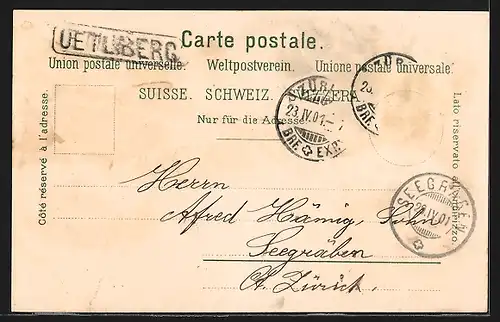 UETLIBERG
Carte postale.
Union postale universelle. Weltpostverein. Unione postale universale.
SUISSE. SCHWEIZ. SVIZZERA.
Nur für die Adresse.
Côté réservé à l'adresse.
Lato riservato all'indirizzo.
ZÜRI
23.IV.01
BRF. EXP.
ZÜR
BR
SEEGRÄBEN
23.IV.01
Herrn
Alfred Hämig, Sohn
Seegräben
Ct. Zürich.